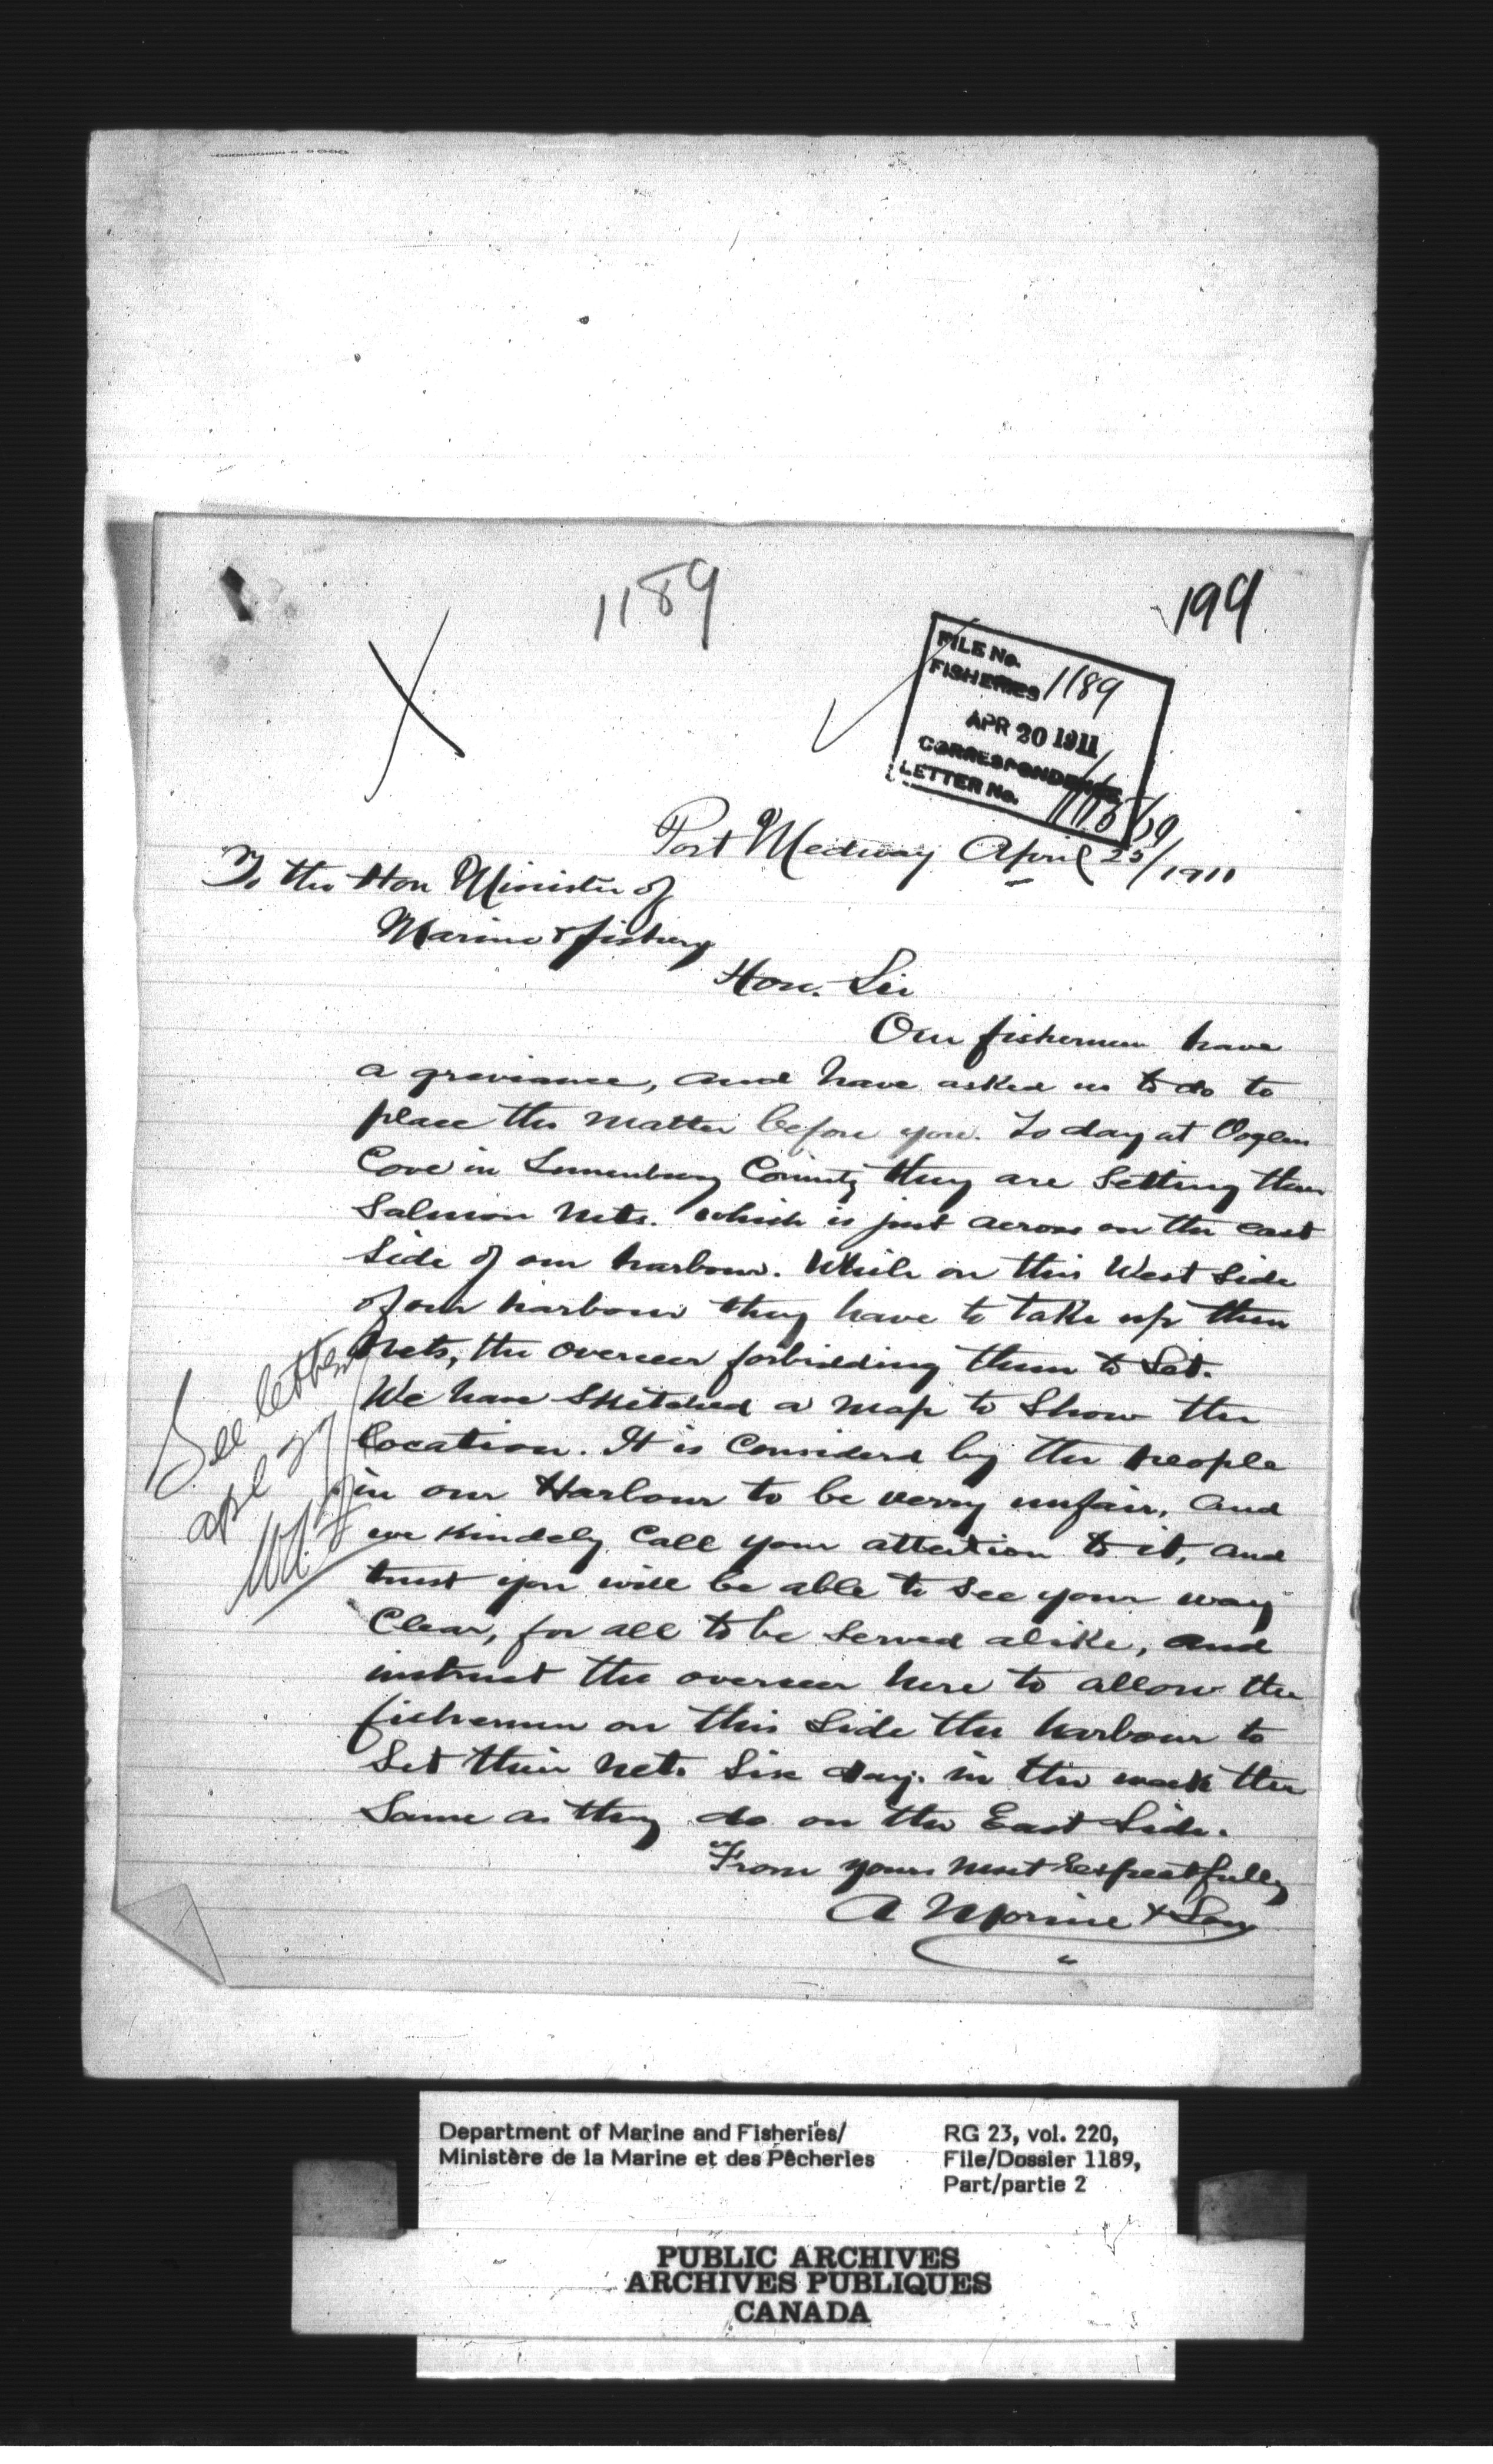 1189
199
FILE No.
FISHERIES 1189
APR 20 1911
CORRESPONDENCE
LETTER No.
Port Medway April 25/1911
To the Hon Minister of
Marine & fishery
Hon. Sir
Our fishermen have
a greviance, and have asked us to do to
place the matter before you. To day at Voglers
Cove in Lunenburg County they are Setting their
Salmon nets. which is just across on the east
Side of our harbour. While on this West Side
of our harbour they have to take up their
nets, the overseer forbidding them to Set.
We have Sketched a map to Show the
Location. It is Considerd by the people
in our Harbour to be verry unfair, and
we Kindely Call your attention to it, and
trust you will be able to see your way
Clear, for all to be Served alike, and
instruct the overseer here to allow the
fishermen on this Side the harbour to
Set their nets Six days in the week the
Same as they do on the East Side.
From yours most Respectfully
A Morine & Son
See letter
apl 27
Department of Marine and Fisheries/
Ministère de la Marine et des Pêcheries
RG 23, vol. 220,
File/Dossier 1189,
Part/partie 2
PUBLIC ARCHIVES
ARCHIVES PUBLIQUES
CANADA